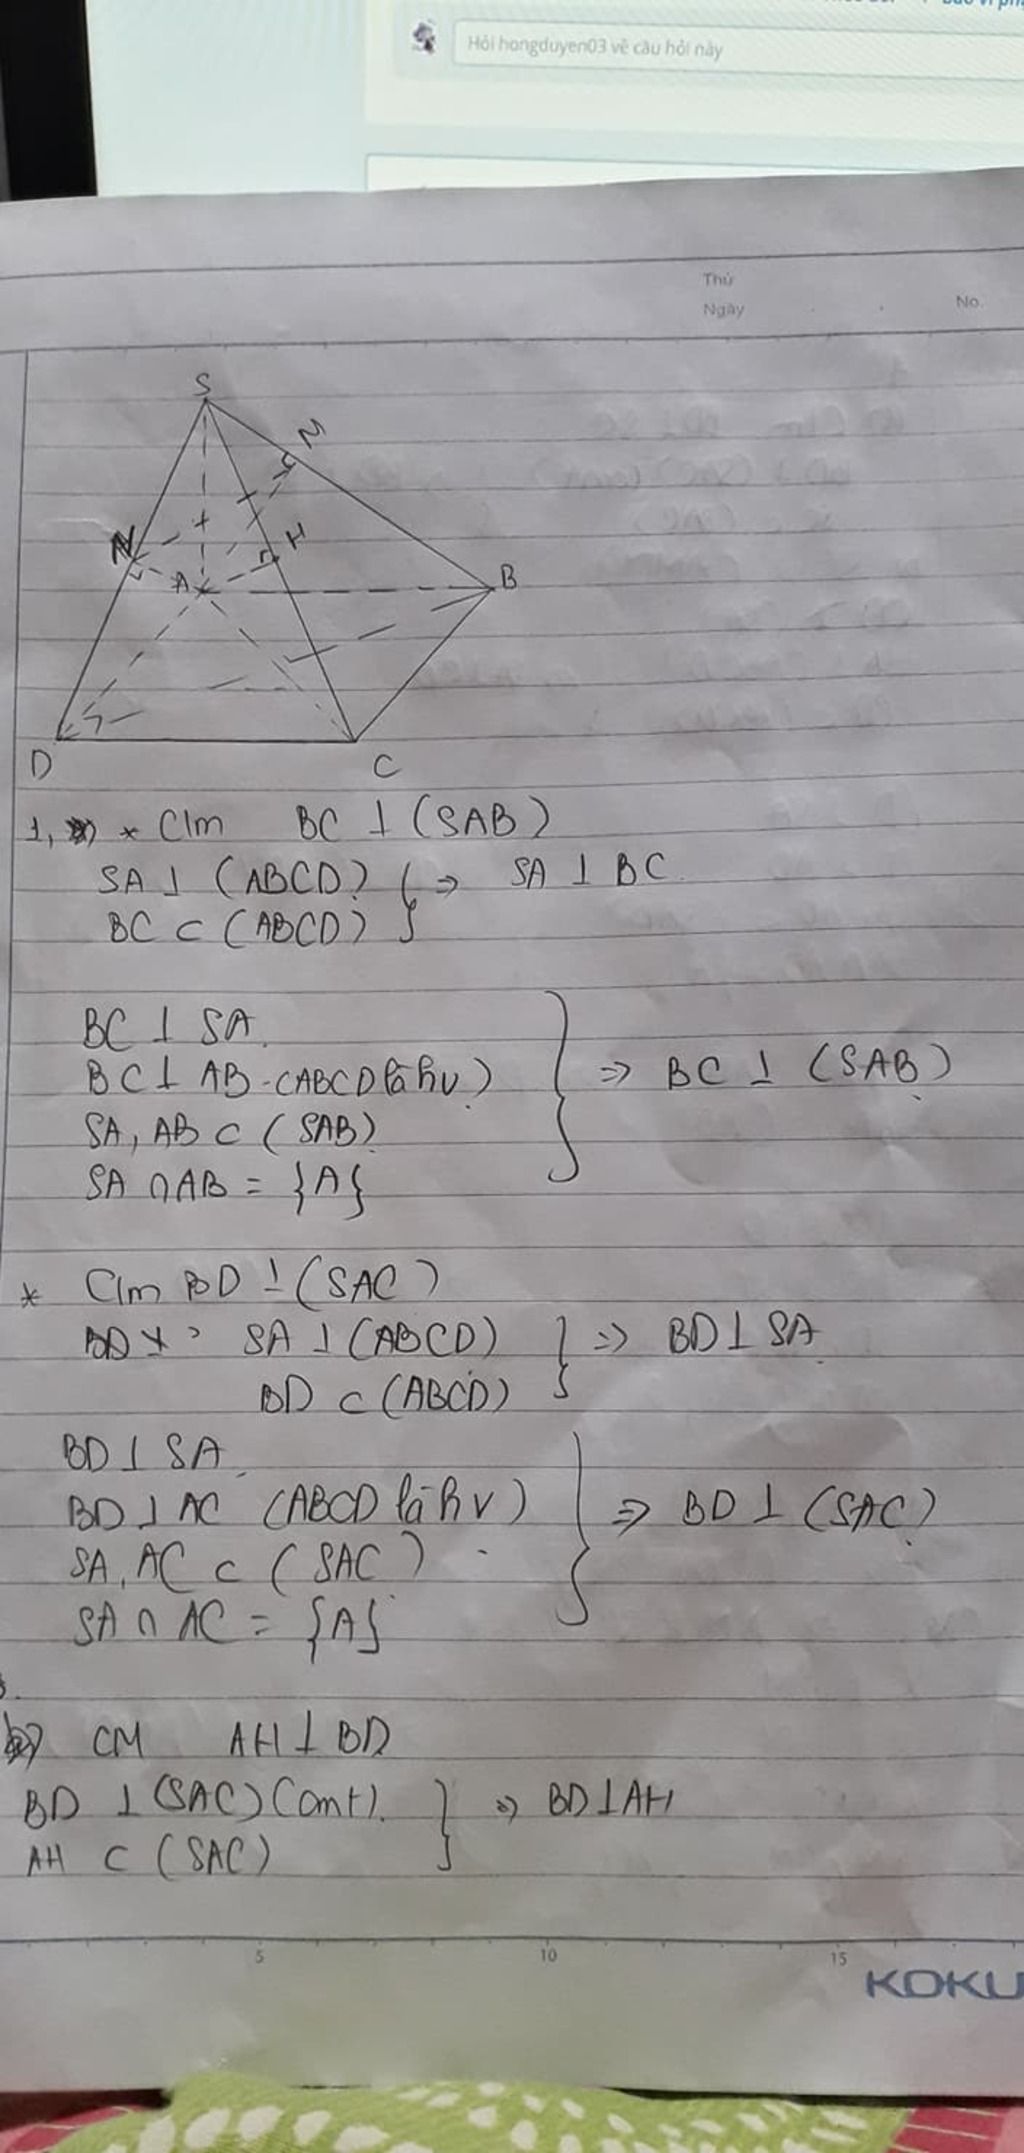 Hỏi hongduyen03 về câu hỏi này
Thứ
Ngày
No.
S
M
N
H
A
B
D
C
1, * C/m BC ⊥ (SAB)
SA ⊥ (ABCD) } => SA ⊥ BC
BC ⊂ (ABCD)
BC ⊥ SA
BC ⊥ AB (ABCD là hv) } => BC ⊥ (SAB)
SA, AB ⊂ (SAB)
SA ∩ AB = {A}
* C/m BD ⊥ (SAC)
SA ⊥ (ABCD) } => BD ⊥ SA
BD ⊂ (ABCD)
BD ⊥ SA
BD ⊥ AC (ABCD là hv) } => BD ⊥ (SAC)
SA, AC ⊂ (SAC)
SA ∩ AC = {A}
CM AH ⊥ BD
BD ⊥ (SAC) (cmt) } => BD ⊥ AH
AH ⊂ (SAC)
5 10 15
KOKU